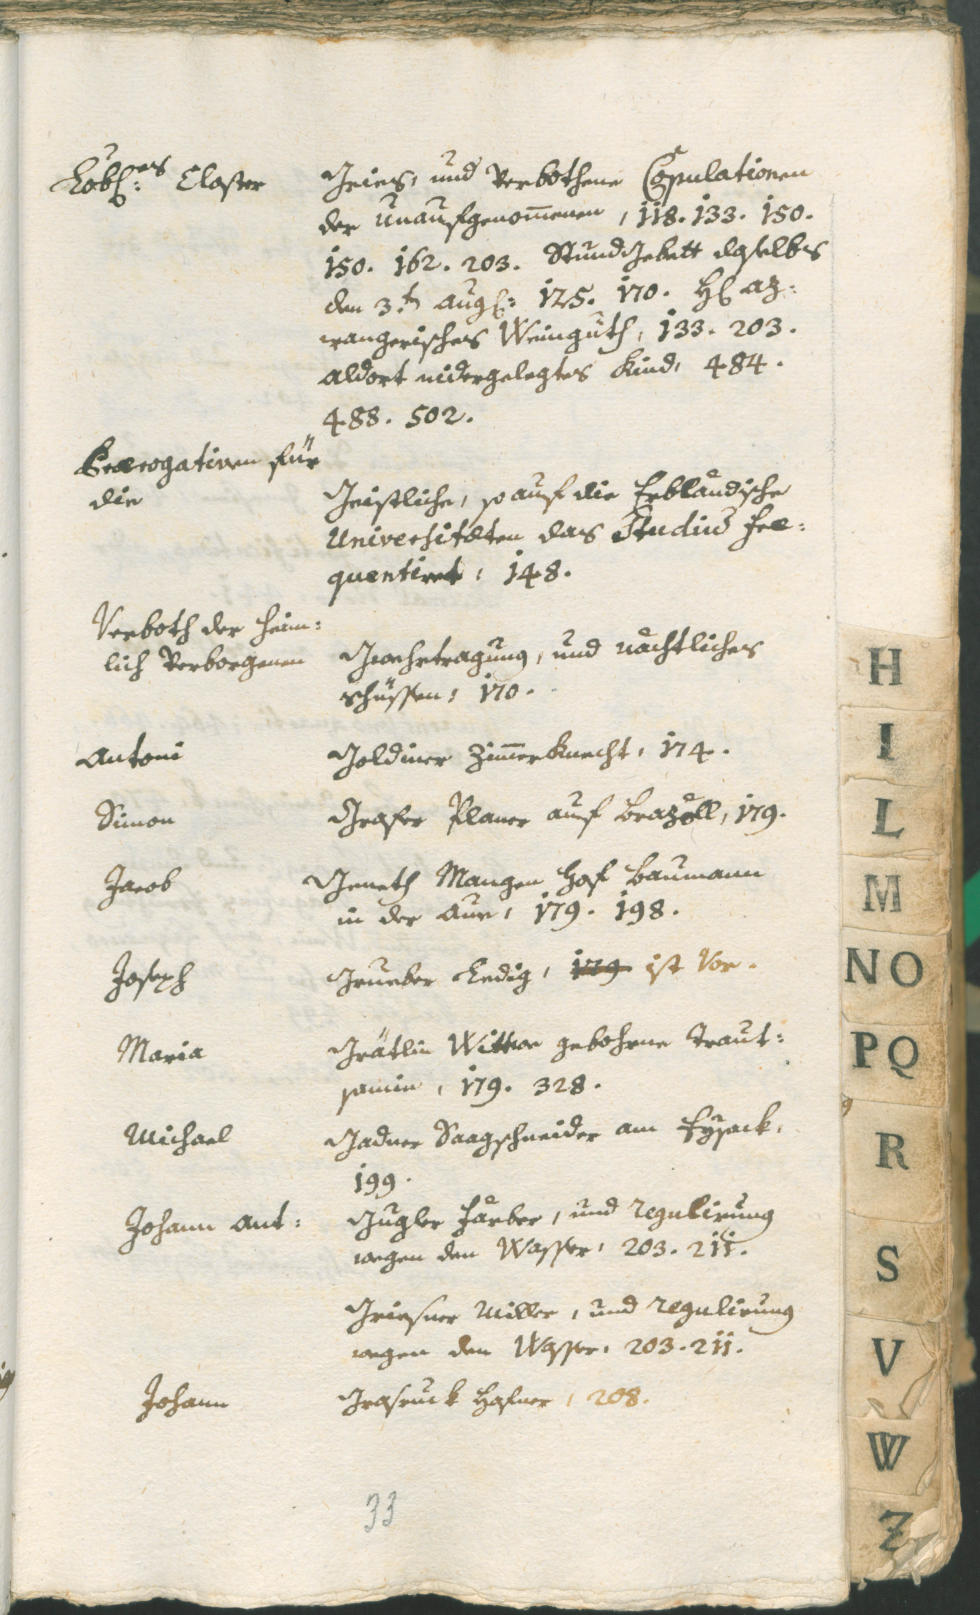 Löbl:es Closter Gries, und Verbothene Copulationen
der Unaufgenom̄enen, 118. 133. 150.
150. 162. 203. Stund Gebett daselbs
den 3.t Aug: 125. 170.
wangerisches Weinguth, 133. 203.
aldort nidergelegtes Kind, 484.
488. 502.
Prærogativen für
die Geistliche, so auf die Erbländische
Universitæten das Studiū fre:
quentiret, 148.
Verboth der heim:
lich Verborgenen Gwehrtragung, und nächtliches
schüssen, 170.
Antoni Goldiner Zim̄erknecht, 174.
Simon Graser Planer auf Brazöll, 179.
Jacob Gineth Mangen Hof Baumann
in der Aur, 179. 198.
Joseph Grueber Ledig, 179 ist Vor.
Maria Grätlin Wittwe gebohrne Traut:
somin, 179. 328.
Michael Gadner Saagschneider am Eysack,
199.
Johann Ant: Gugler Färber, und Regulirung
wegen den Wasser, 203. 211.
Griesner Miller, und Regulirung
wegen den Wasser, 203. 211.
Johann Grasruck Hafner, 208.
33
H
I
L
M
N O
P Q
R
S
V
W
Z